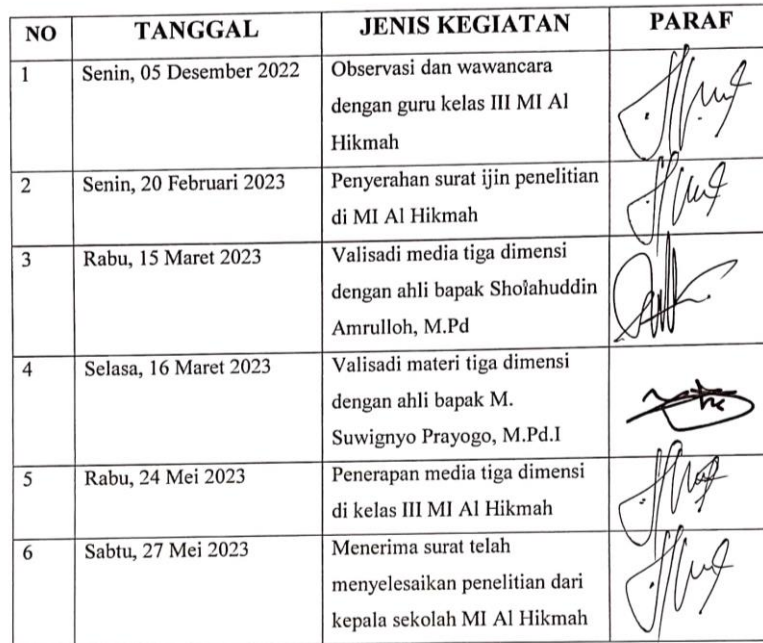 NO TANGGAL JENIS KEGIATAN PARAF
1 Senin, 05 Desember 2022 Observasi dan wawancara
dengan guru kelas III MI Al
Hikmah
2 Senin, 20 Februari 2023 Penyerahan surat ijin penelitian
di MI Al Hikmah
3 Rabu, 15 Maret 2023 Valisadi media tiga dimensi
dengan ahli bapak Sholahuddin
Amrulloh, M.Pd
4 Selasa, 16 Maret 2023 Valisadi materi tiga dimensi
dengan ahli bapak M.
Suwignyo Prayogo, M.Pd.I
5 Rabu, 24 Mei 2023 Penerapan media tiga dimensi
di kelas III MI Al Hikmah
6 Sabtu, 27 Mei 2023 Menerima surat telah
menyelesaikan penelitian dari
kepala sekolah MI Al Hikmah